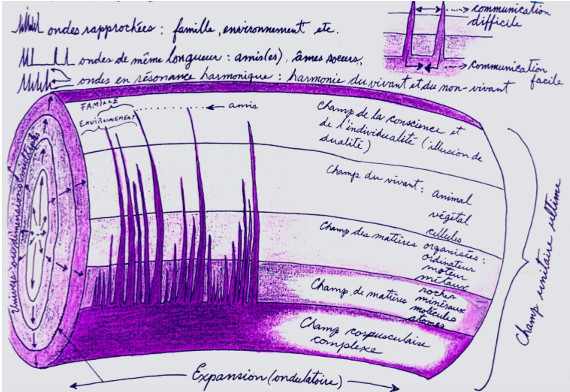 ondes rapprochées : famille, environnement etc.
ondes de même longueur : amis(es), âmes soeurs,
ondes en résonance harmonique : harmonie du vivant et du non-vivant
communication
difficile
communication
facile
FAMILLE
ENVIRONNEMENT
amis
Champ de la conscience et
de l'individualité (illusion de
dualité)
Champ du vivant : animal
végétal
cellules
Champ des matières organisées :
ordinateur
moteur
métaux
Champ de matières
rocher
minéraux
molécules
atomes
Champ corpusculaire
complexe
Champ unitaire ultime
Expansion (ondulatoire)